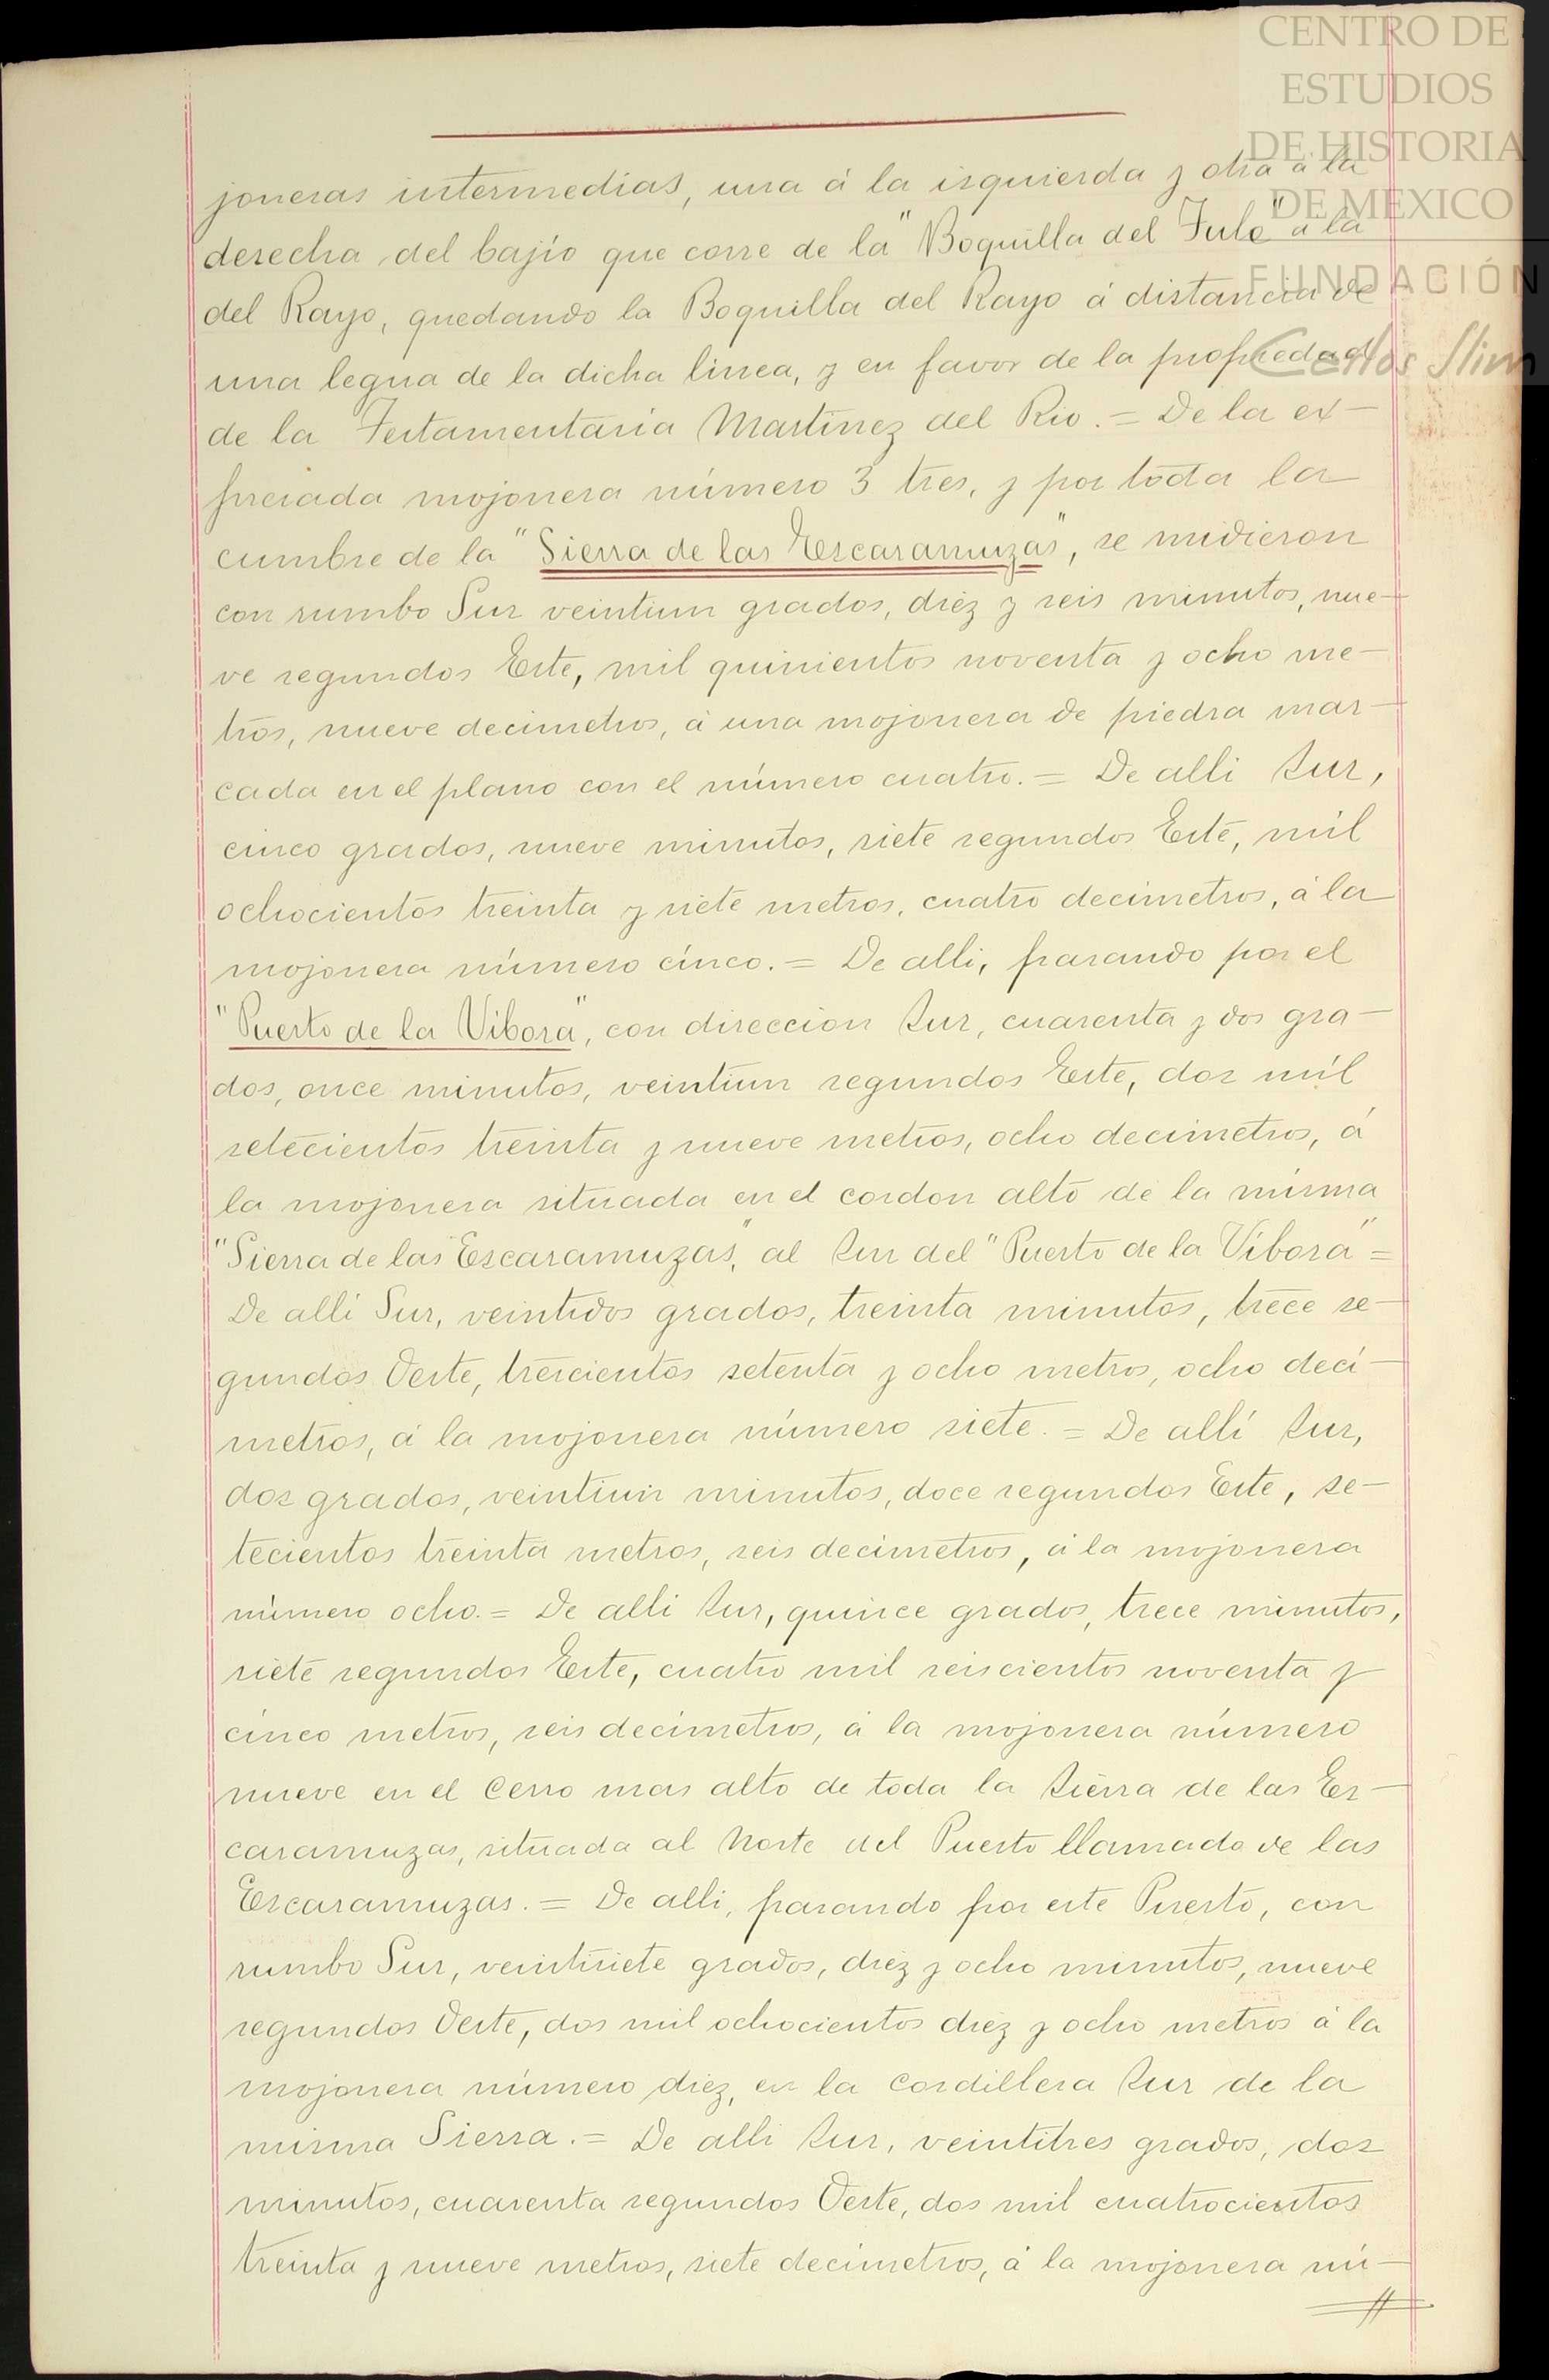 CENTRO DE
ESTUDIOS
DE HISTORIA
DE MEXICO
FUNDACIÓN
Carlos Slim
joneras intermedias, una á la isquierda y otra á la
derecha del bajío que corre de la "Boquilla del Tule" á la
del Rayo, quedando la Boquilla del Rayo á distancia de
una legua de la dicha linea, y en favor de la propiedad
de la Testamentaría Martínez del Rio. = De la ex-
presada mojonera número 3 tres, y por toda la
cumbre de la "Sierra de las Escaramuzas", se midieron
con rumbo Sur veintiun grados, diez y seis minutos, nue-
ve segundos Este, mil quinientos noventa y ocho me-
tros, nueve decimetros, á una mojonera de piedra mar-
cada en el plano con el número cuatro. = De alli Sur,
cinco grados, nueve minutos, siete segundos Este, mil
ochocientos treinta y siete metros, cuatro decímetros, á la
mojonera número cinco. = De alli, pasando por el
"Puerto de la Vibora", con direccion Sur, cuarenta y dos gra-
dos, once minutos, veintiun segundos Este, dos mil
setecientos treinta y nueve metros, ocho decimetros, á
la mojonera situada en el cordon alto de la misma
"Sierra de las Escaramuzas," al Sur del "Puerto de la Víbora" =
De allí Sur, veintidos grados, treinta minutos, trece se-
gundos Oeste, trescientos setenta y ocho metros, ocho decí-
metros, á la mojonera número siete. = De allí Sur,
dos grados, veintiun minutos, doce segundos Este, se-
tecientos treinta metros, seis decímetros, á la mojonera
número ocho. = De alli Sur, quince grados, trece minutos,
siete segundos Este, cuatro mil seiscientos noventa y
cinco metros, seis decímetros, á la mojonera número
nueve en el Cerro mas alto de toda la Sierra de las Es-
caramuzas, situada al Norte del Puerto llamado de las
Escaramuzas. = De alli, pasando por este Puerto, con
rumbo Sur, veintisiete grados, diez y ocho minutos, nueve
segundos Oeste, dos mil ochocientos diez y ocho metros á la
mojonera número diez, en la Cordillera Sur de la
misma Sierra. = De alli Sur, veintitres grados, dos
minutos, cuarenta segundos Oeste, dos mil cuatrocientos
treinta y nueve metros, siete decímetros, á la mojonera nú-